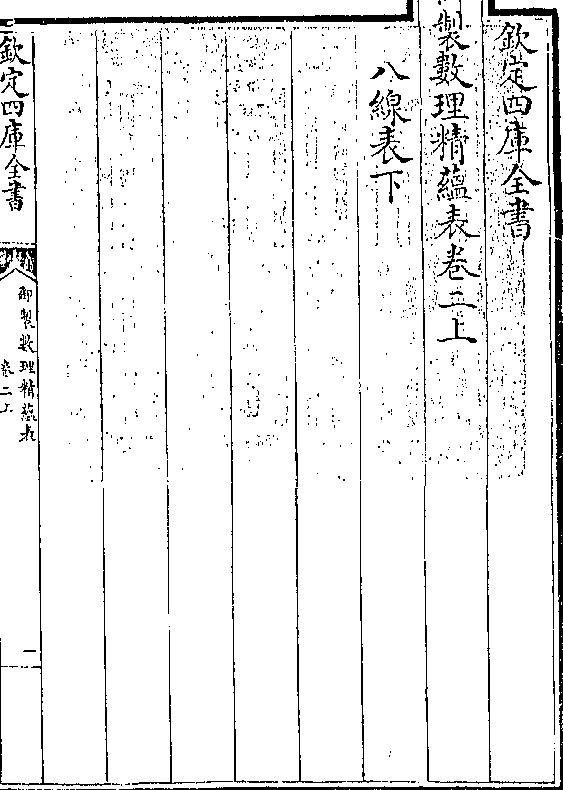 欽定四庫全書
製數理精蘊表卷二上
八線表下
欽定四庫全書
御製數理精蘊表
卷二上
一